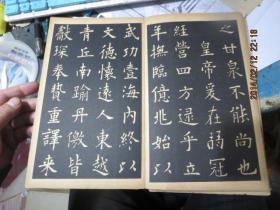 之甘泉不能尚也
皇帝爰在弱冠
經營四方逮乎立
年撫臨億兆始以
武功壹海內終以
文德懷遠人東越
青丘南踰丹徼皆
獻琛奉贄重譯來
2016/02/12 22:18